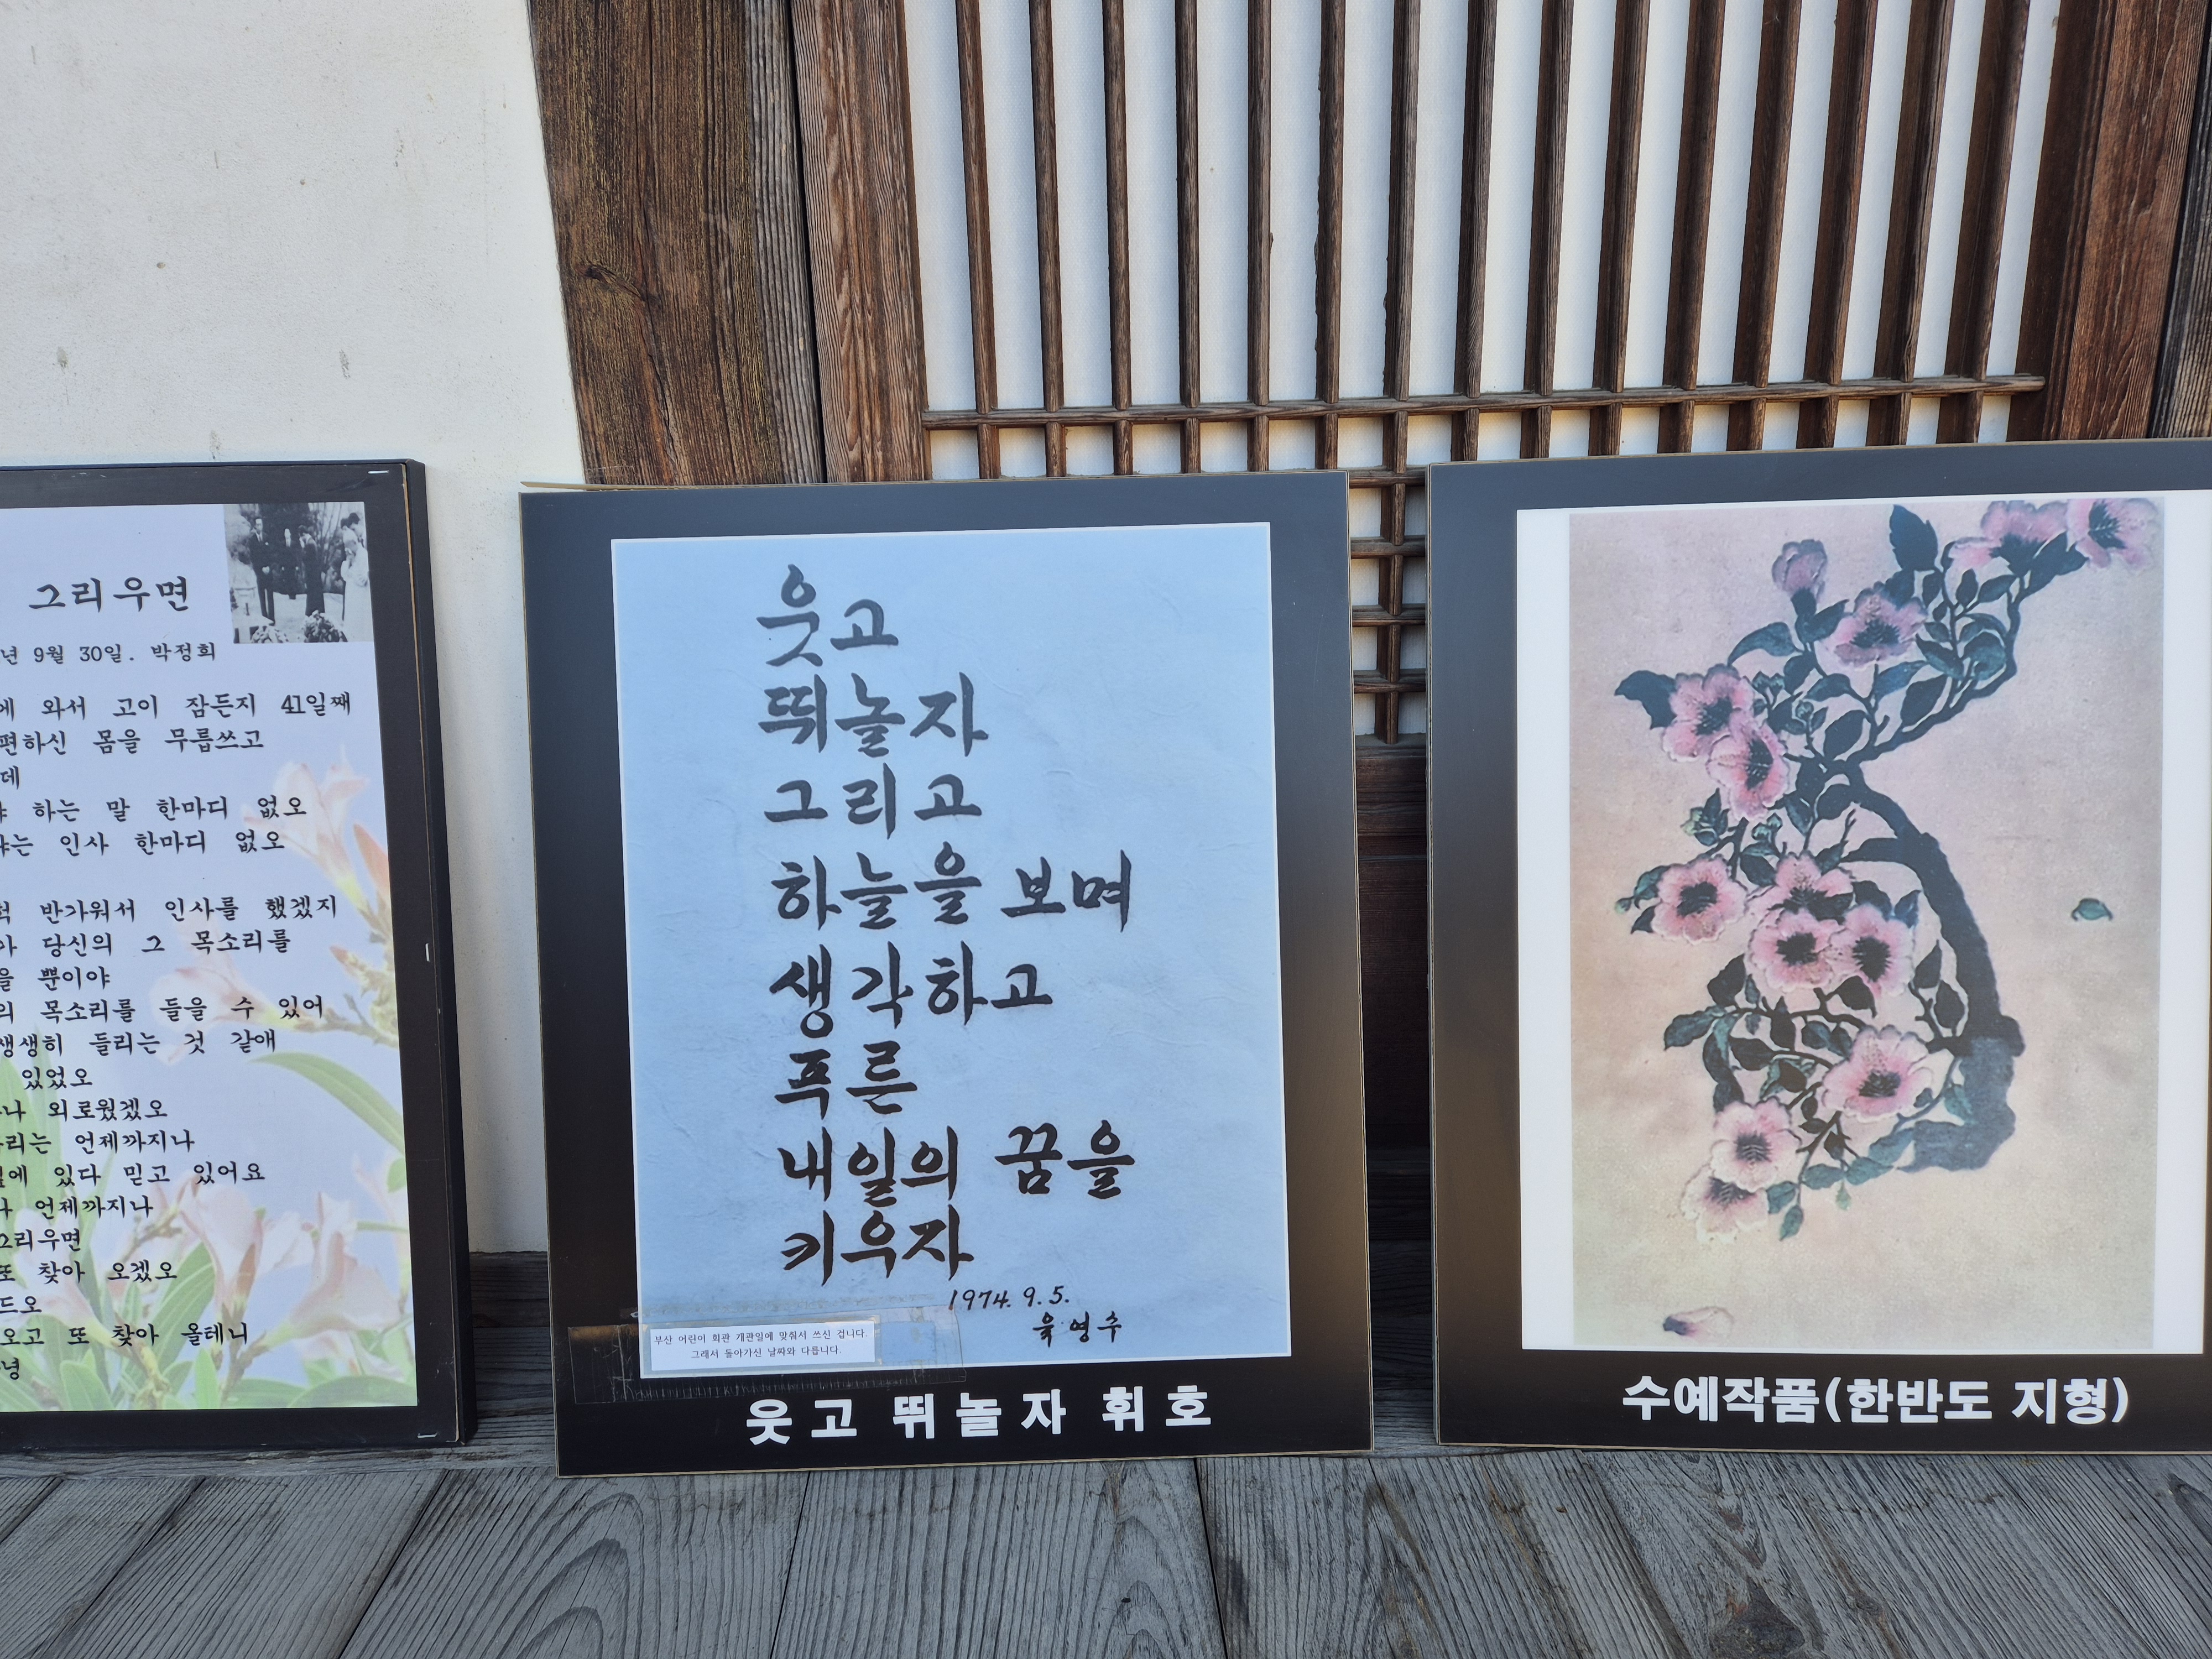 그리우면
년 9월 30일. 박정희
에 와서 고이 잠든지 41일째
편하신 몸을 무릅쓰고
데
하는 말 한마디 없오
는 인사 한마디 없오
반가워서 인사를 했겠지
당신의 그 목소리를
을 뿐이야
의 목소리를 들을 수 있어
생생히 들리는 것 같애
있었오
나 외로웠겠오
리는 언제까지나
에 있다 믿고 있어요
언제까지나
그리우면
또 찾아 오겠오
드오
오고 또 찾아 올테니
녕
웃고
뛰놀자
그리고
하늘을 보며
생각하고
푸른
내일의 꿈을
키우자
1974. 9. 5.
육영수
부산 어린이 회관 개관일에 맞춰서 쓰신 겁니다.
그래서 돌아가신 날짜와 다릅니다.
웃고 뛰놀자 휘호
수예작품(한반도 지형)